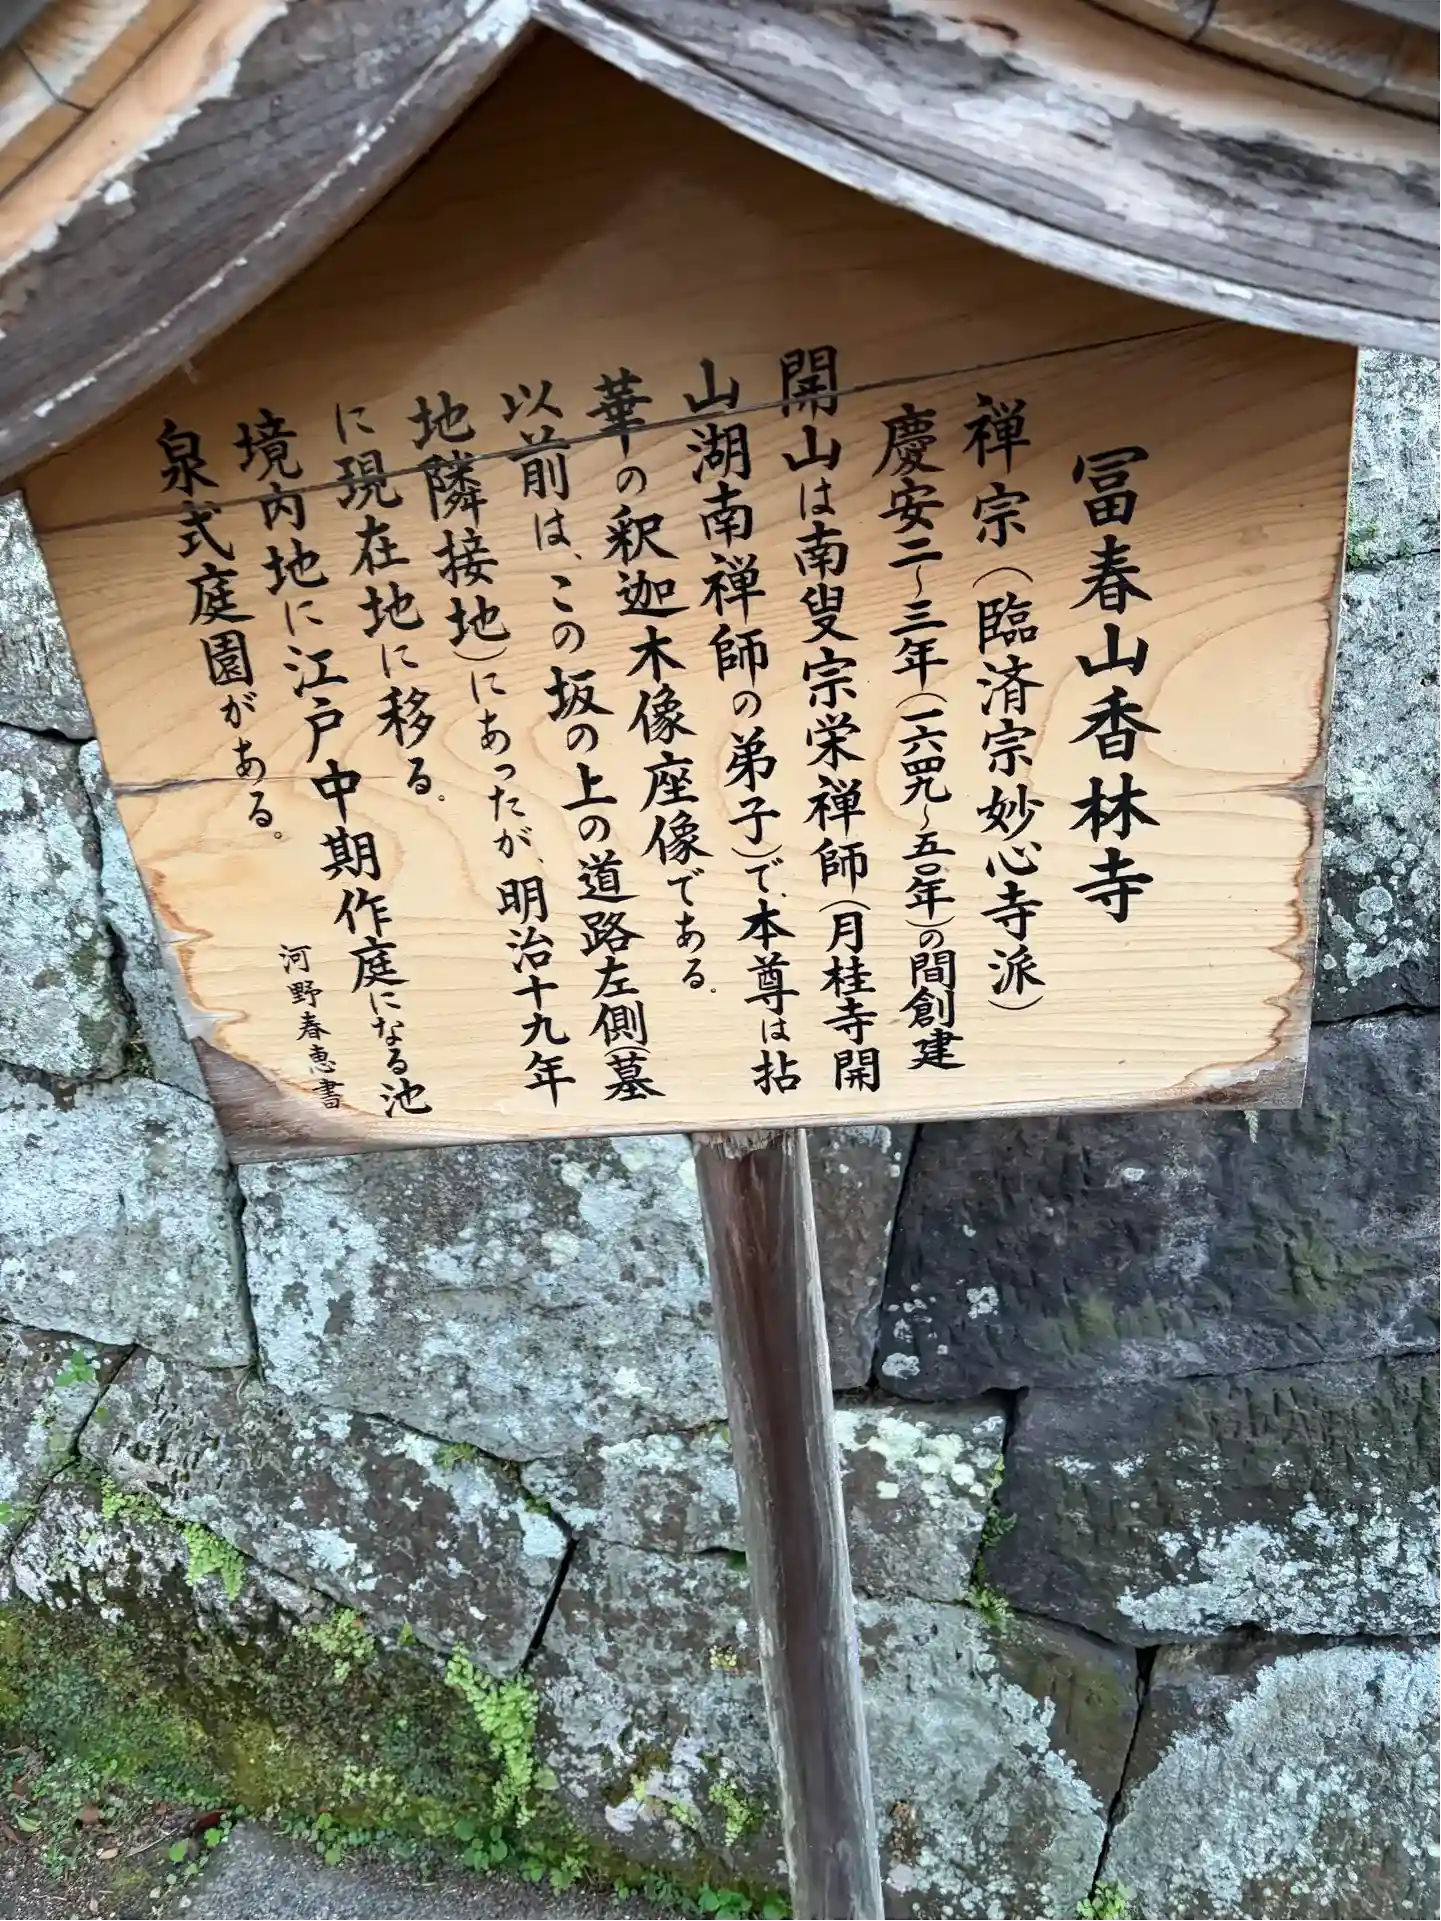 冨春山香林寺
禅宗（臨済宗妙心寺派）
慶安二〜三年（一六四九〜五〇年）の間創建
開山は南叟宗栄禅師（月桂寺開
山湖南禅師の弟子）で、本尊は拈
華の釈迦木像座像である。
以前は、この坂の上の道路左側（墓
地隣接地）にあったが、明治十九年
に現在地に移る。
境内地に江戸中期作庭になる池
泉式庭園がある。
河野春恵書